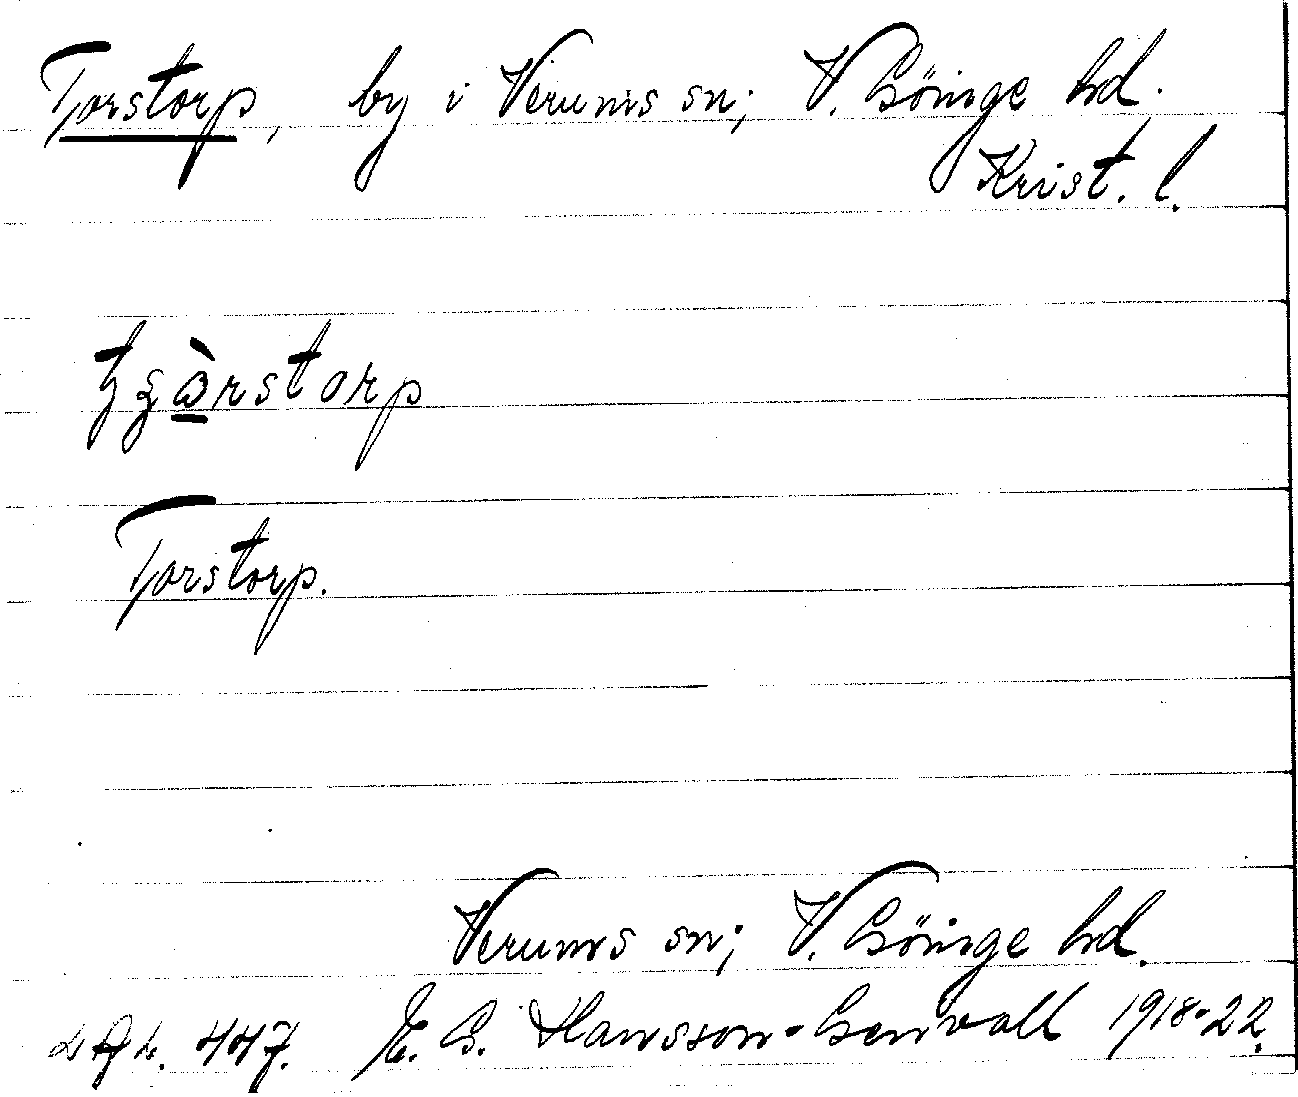 Torstorp, by i Verums sn; V. Göinge hd.
Krist. l.
Torstorp.
Verums sn; V. Göinge hd.
447. E. G. Hansson-Genvall 1918-22.